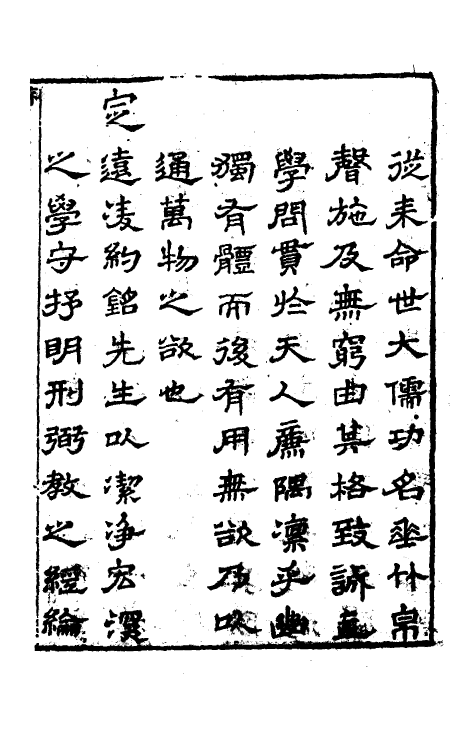 從来命世大儒功名垂竹帛
聲施及無窮由其格致誠正
學問貫於天人廉隅凜乎幽
獨有體而後有用無欲所以
通萬物之欲也
定遠凌約銘先生以潔净宏深
之學守抒明刑弼教之經綸